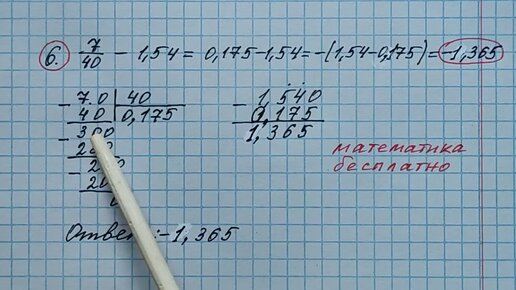 6. 7/40 - 1,54 = 0,175-1,54 = -(1,54-0,175) = -1,365
- 7.0 | 40
40 | 0,175
- 300
280
- 200
200
0
- 1,540
0,175
1,365
математика
бесплатно
Ответ: -1,365